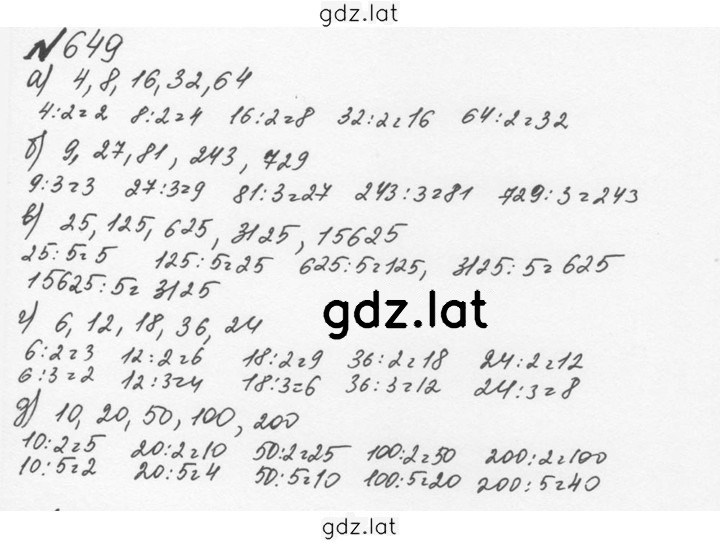 gdz.lat
№649
а) 4, 8, 16, 32, 64
4:2=2 8:2=4 16:2=8 32:2=16 64:2=32
б) 9, 27, 81, 243, 729
9:3=3 27:3=9 81:3=27 243:3=81 729:3=243
в) 25, 125, 625, 3125, 15625
25:5=5 125:5=25 625:5=125, 3125:5=625
15625:5=3125
gdz.lat
г) 6, 12, 18, 36, 24
6:2=3 12:2=6 18:2=9 36:2=18 24:2=12
6:3=2 12:3=4 18:3=6 36:3=12 24:3=8
д) 10, 20, 50, 100, 200
10:2=5 20:2=10 50:2=25 100:2=50 200:2=100
10:5=2 20:5=4 50:5=10 100:5=20 200:5=40
gdz.lat